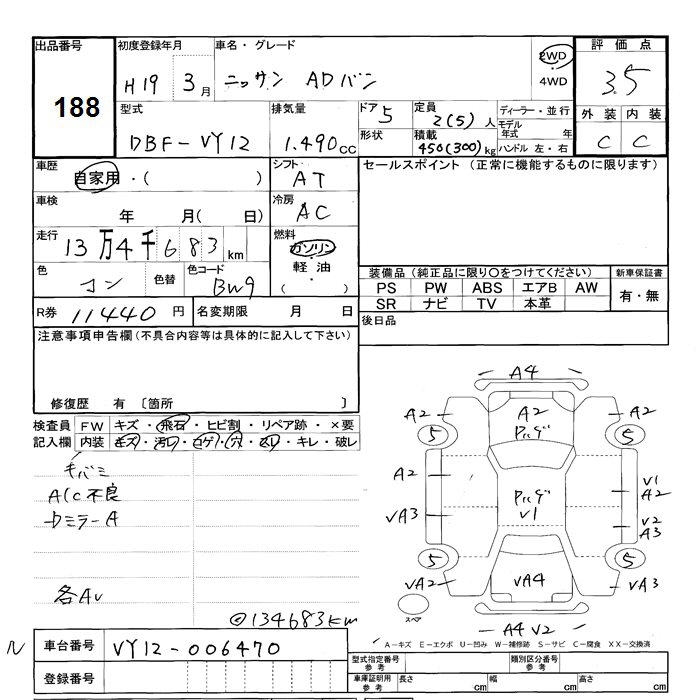 出品番号 初度登録年月 車名・グレード 評価点
188 H19 3月 ニッサン ADバン 2WD 4WD 3.5
型式 排気量 ドア 5 定員 2(5)人 ディーラー・並行 外装 内装
DBF-VY12 1.490cc 形状 積載 450(300)kg モデル年式 年 ハンドル 左・右 C C
車歴 シフト セールスポイント (正常に機能するものに限ります)
自家用・( ) AT
車検 冷房
年 月( 日) AC
走行 燃料
13万4千683km ガソリン
軽油
( )
色 色替 色コード 装備品 (純正品に限り○をつけてください) 新車保証書
コン BW9 PS PW ABS エアB AW 有・無
SR ナビ TV 本革
R券 11440円 名変期限 月 日 後日品
注意事項申告欄 (不具合内容等は具体的に記入して下さい)
修復歴 有 〔箇所 〕
検査員 FW キズ・飛石・ヒビ割・リペア跡・×要
記入欄 内装 キズ・汚れ・コゲ・穴・スレ・キレ・破レ
キバミ
A/C不良
ドミラーA
各AU
◎134683km
A4
A2 A2 A2
5 5
A2 V1
A2
VA3 V1 V2
A3
5 5
VA2 VA4 VA3
スペア
A4 V2
A-キズ E-エクボ U-凹み W-補修跡 S-サビ C-腐食 XX-交換済
車台番号 VY12-006470
登録番号
型式指定番号 参考 類別区分番号 参考
車庫証明用 参考 長さ cm 幅 cm 高さ cm